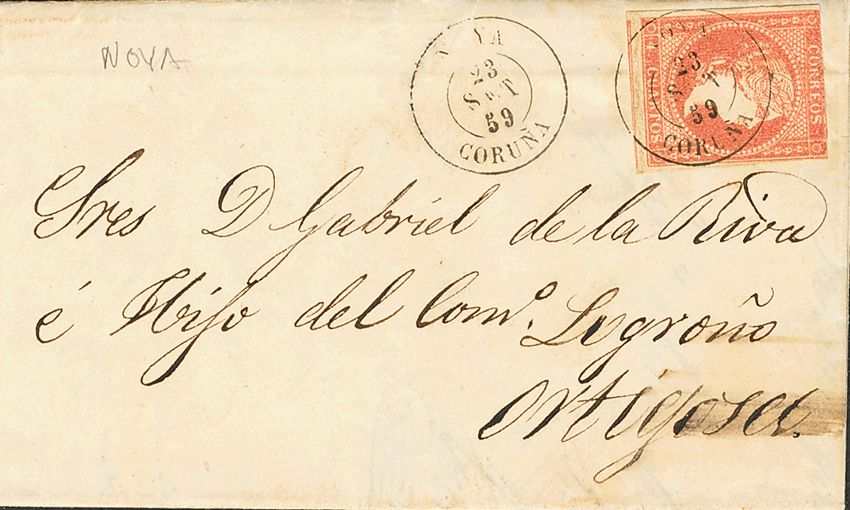 NOYA
N YA
23
SET
59
CORUÑA
NOYA
23
SET
59
CORUÑA
CORREOS
4 CUARTOS
Sres D Gabriel de la Riva
é Hijo del Comº. Logroño
Ortigosa.